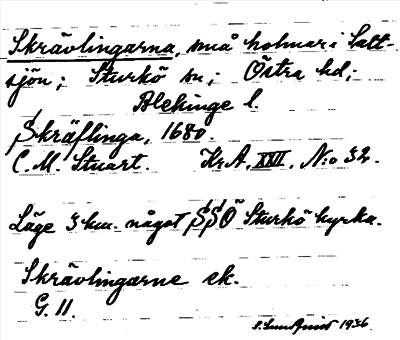 Skrävlingarna, små holmar i Salt-
sjön; Sturkö sn; Östra hd;
Blekinge l.
Skräflinga, 1680.
C. M. Stuart. Kr. A. XXII. N:o 32.
Läge 3 km. något SSÖ Sturkö kyrka.
Skrävlingarne ek.
G. 11.
S. Lundquist 1936